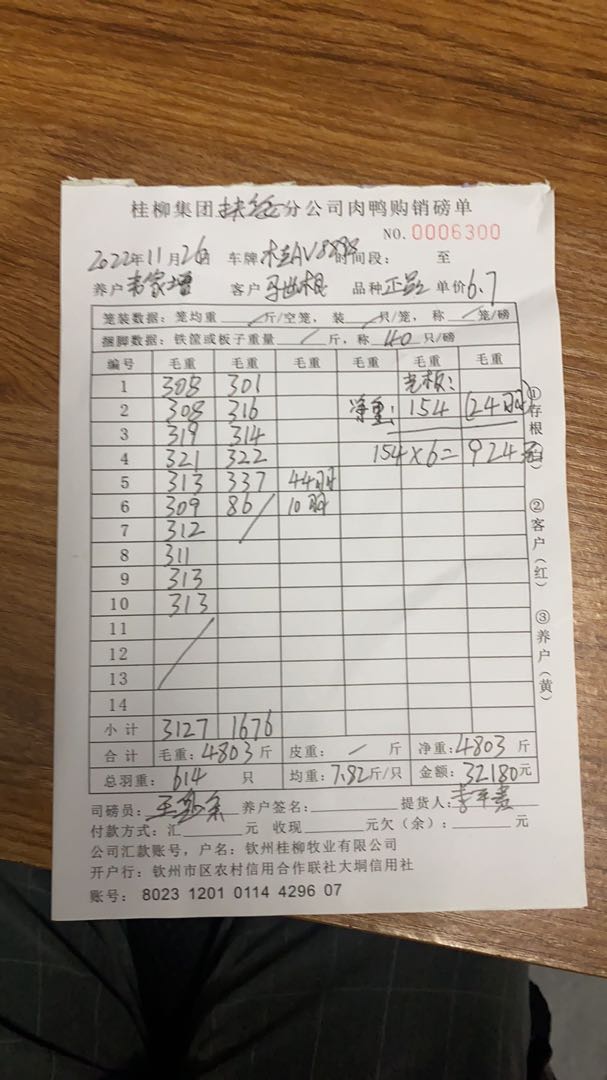 桂柳集团扶绥分公司肉鸭购销磅单
NO.0006300
2022年11月26日 车牌 桂AV8898 时间段： 至
养户 韦家增 客户 马世根 品种 正品 单价 6.7
笼装数据：笼均重 / 斤/空笼，装 / 只/笼，称 / 笼/磅
捆脚数据：铁筐或板子重量 / 斤，称 40 只/磅
编号 毛重 毛重 毛重 毛重 毛重 毛重
1 308 301
2 308 316 净重： 154 (24羽)
3 319 314
4 321 322 154×6=924
5 313 337 44羽
6 309 86 10羽
7 312
8 311
9 313
10 313
11
12
13
14
小计 3127 1676
合计 毛重：4803 斤 皮重： / 斤 净重：4803 斤
总羽重：614 只 均重：7.82斤/只 金额：32180元
司磅员： 养户签名： 提货人：
付款方式：汇 元 收现 元欠（余）： 元
公司汇款账号，户名：钦州桂柳牧业有限公司
开户行：钦州市区农村信用合作联社大垌信用社
账号：8023 1201 0114 4296 07
①存根
②客户（红）
③养户（黄）